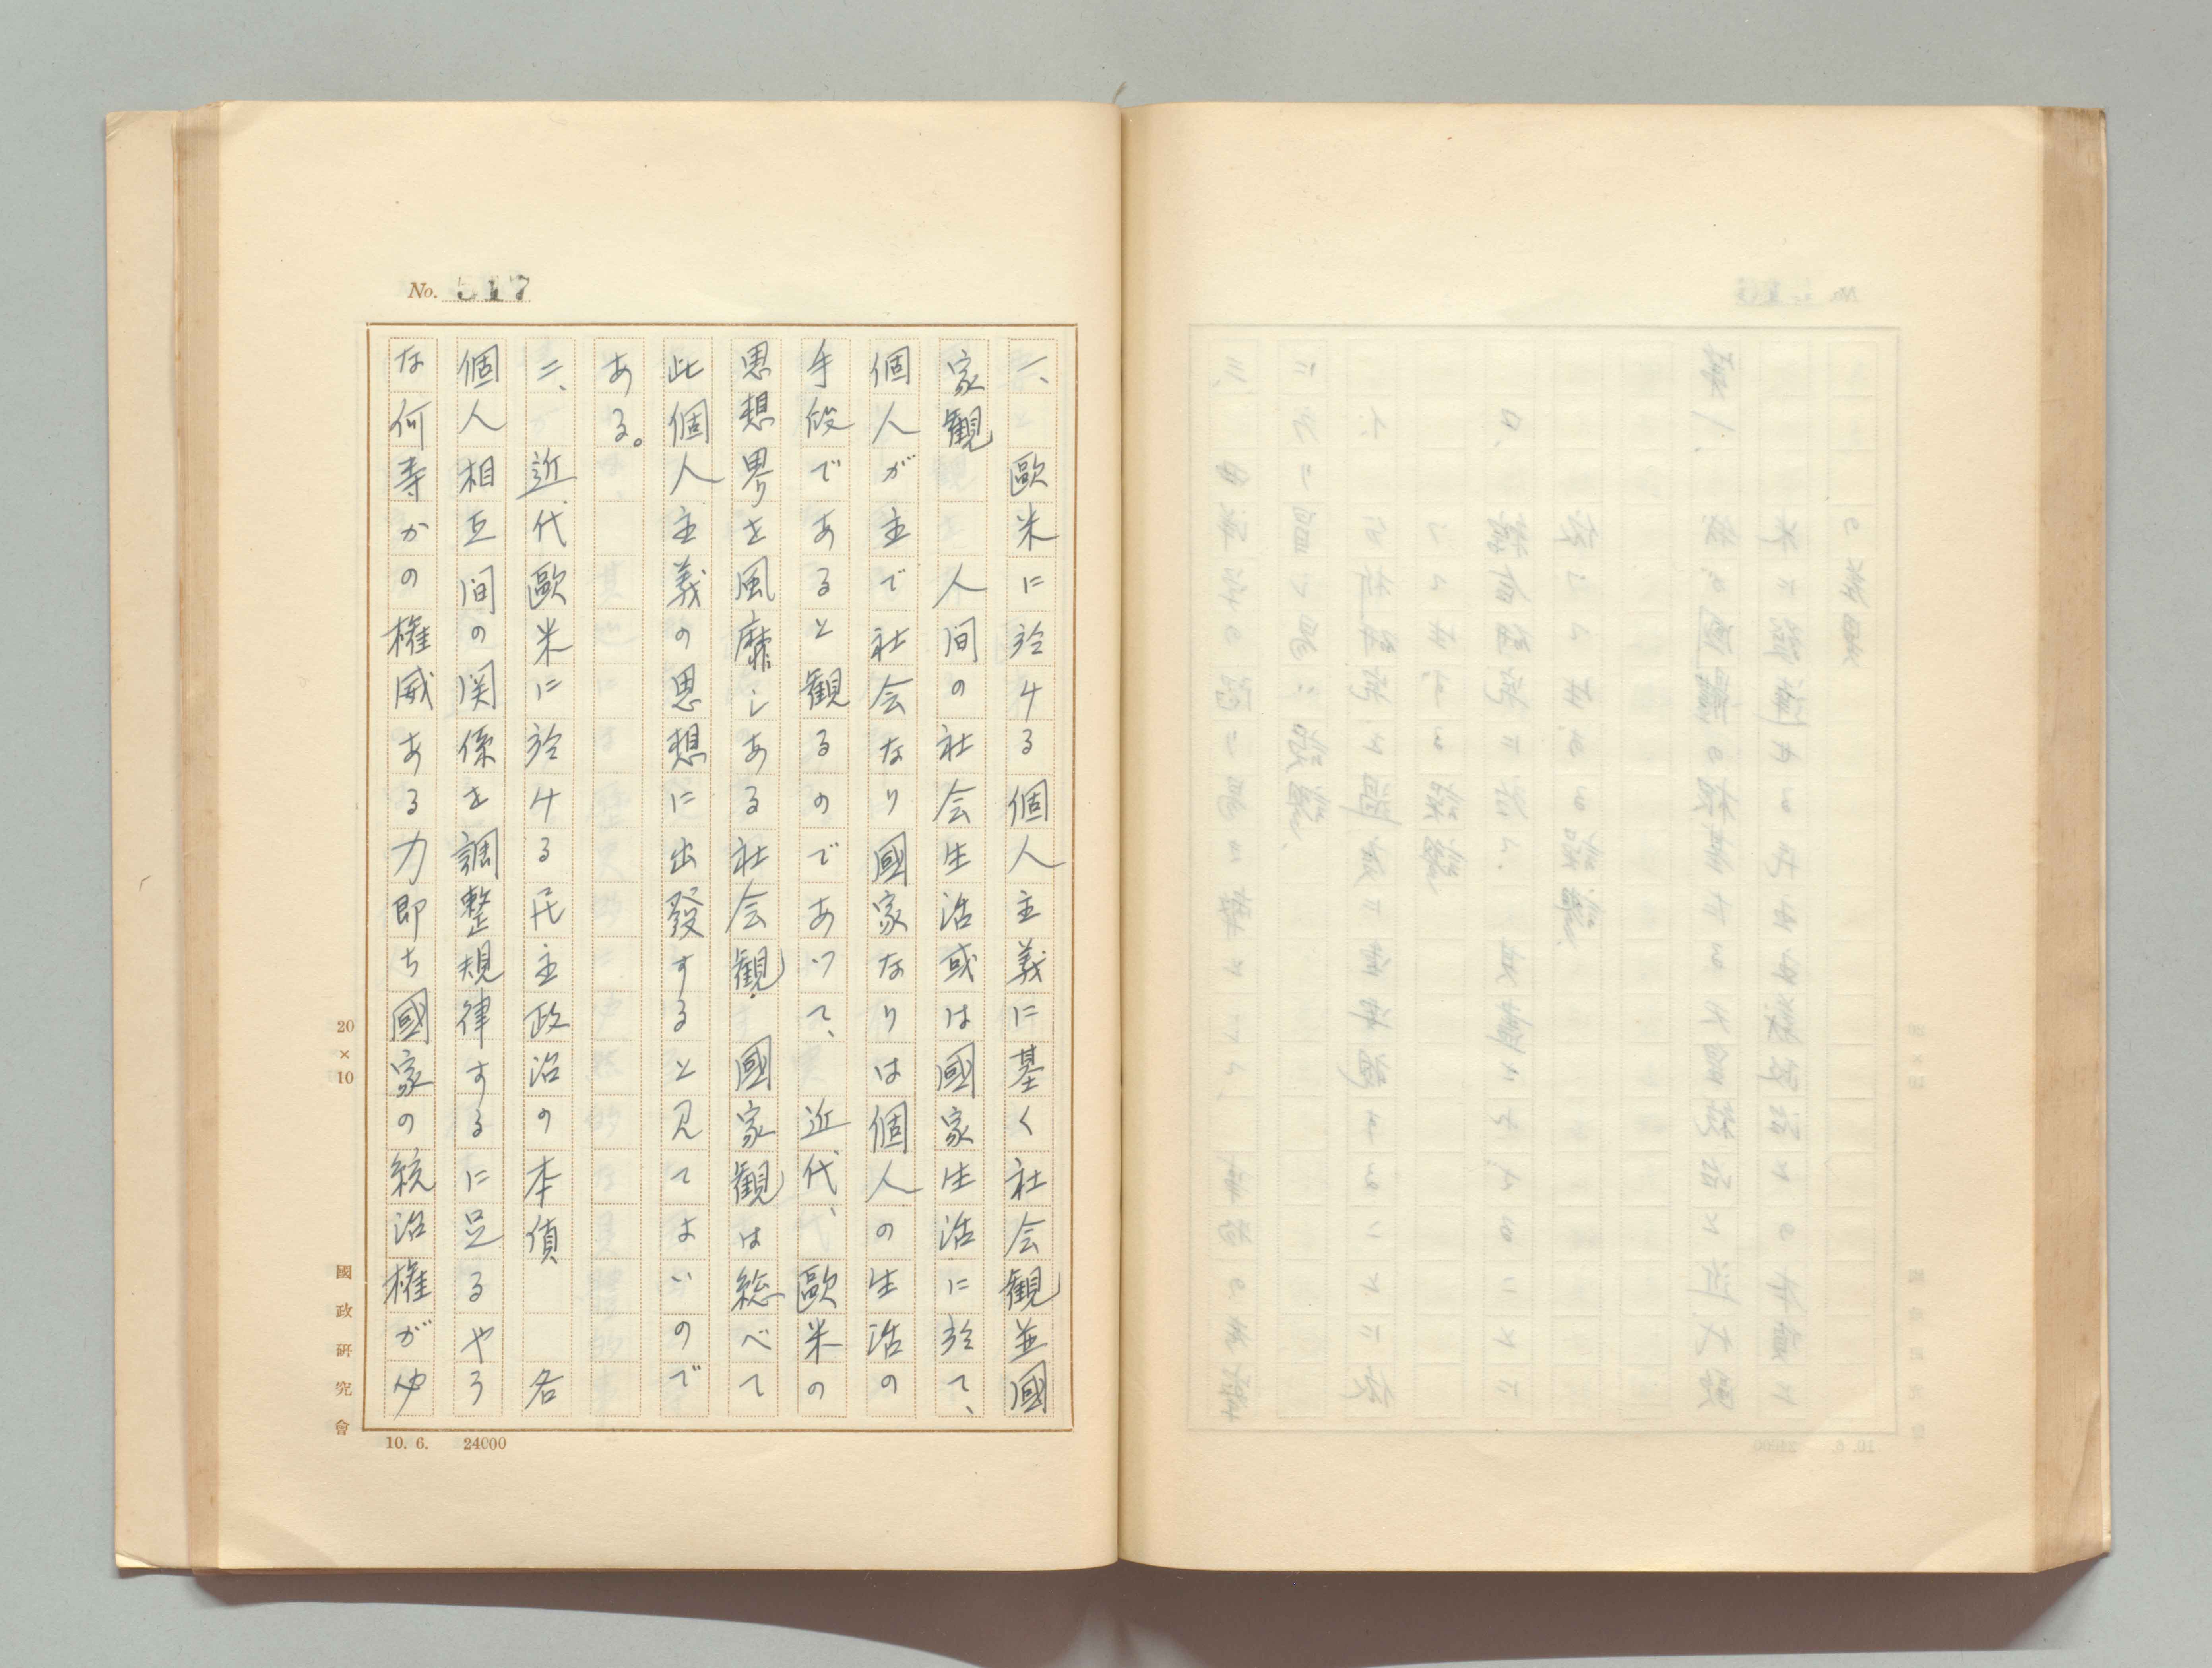 No. 517
一、 歐米に於ける個人主義に基く社会観並國
家観  人間の社会生活或は國家生活に於て、
個人が主で社会なり國家なりは個人の生活の
手段であると観るのであつて、 近代、歐米の
思想界を風靡しある社会観、國家観は総べて
此個人主義の思想に出發すると見てよいので
ある。
二、 近代歐米に於ける民主政治の本質  各
個人相互间の関係を調整規律するに足るやう
な何等かの権威ある力即ち國家の統治権が必
20×10
國政研究會
10. 6. 24000